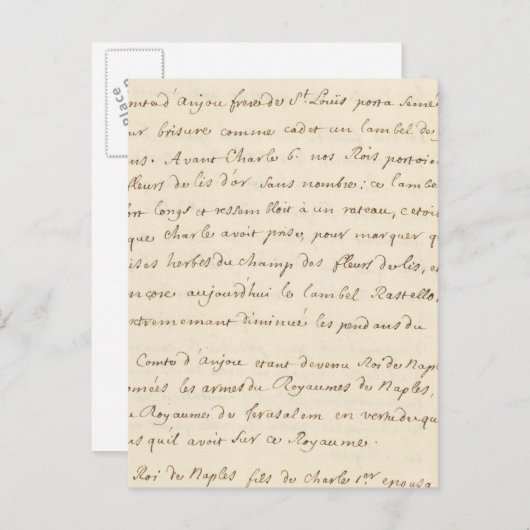 zazzle place
omte d'Anjou frere de St. Louis porta semé
ur brisure comme cadet un lambel de
ns. Avant Charle 6. nos Rois portoie
fleurs de lis d'or sans nombre; ce lambe
ort longs et ressembloit à un rateau, c'etoi
que charle avoit prise, pour marquer q
ises herbes du champ des fleurs de lis, e
ncore aujourd'hui le lambel Rastello
xtrememant diminué les pendans du
Comte d'Anjou etant devenu Roi de Napl
onnées les armes du Royaumes de Naples,
u Royaume de Jerusalem en vertu du qu
ns qu'il avoit sur ce Royaume.
Roi de Naples fils de Charle 1.er epousa